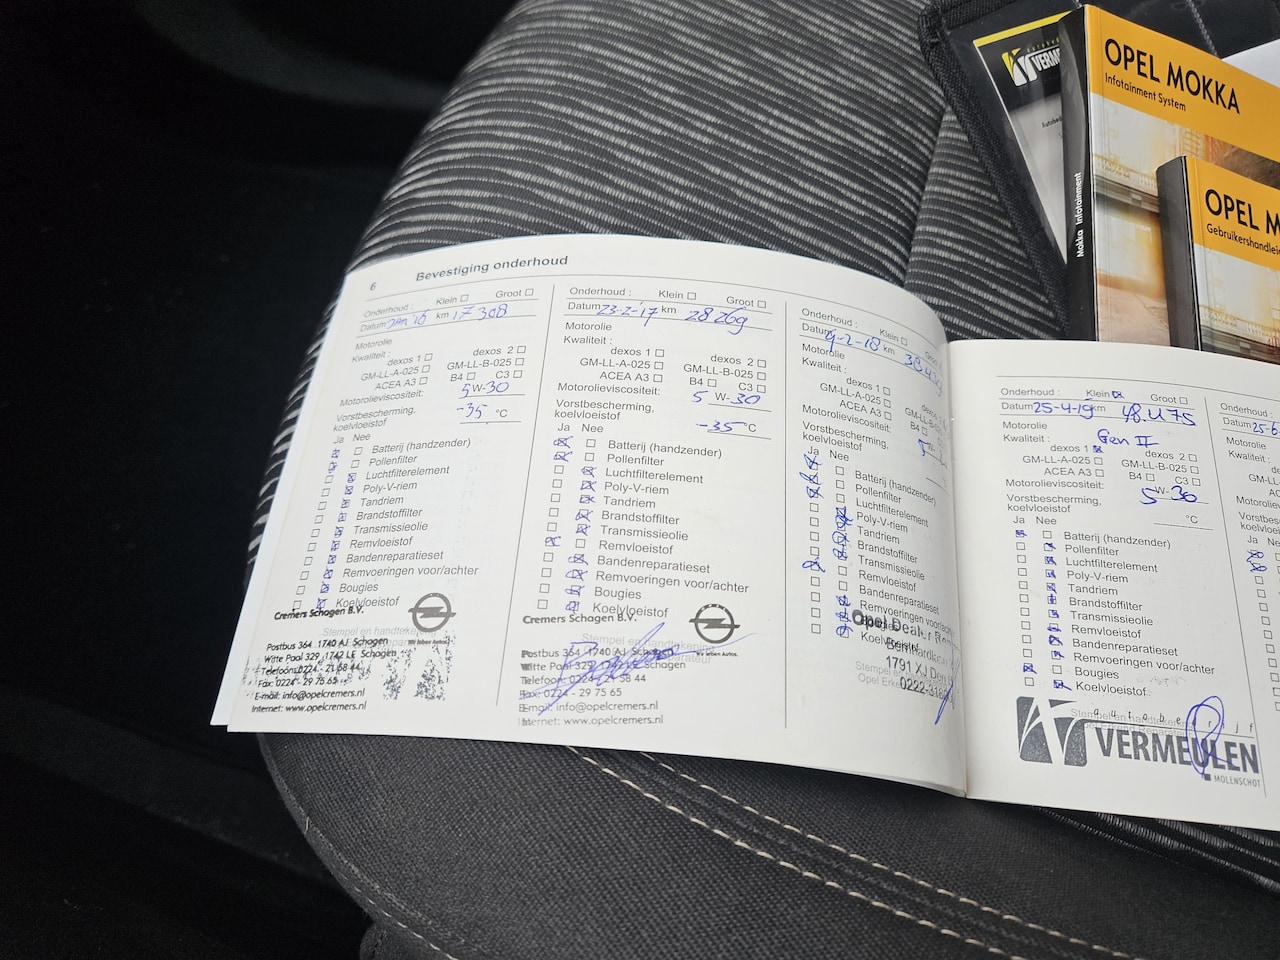 VERME
OPEL MOKKA
Infotainment System
Mokka Infotainment
OPEL M
Gebruikershandlei
6
Bevestiging onderhoud
Onderhoud : Klein Groot
Datum Jan '16 km 17308
Motorolie
Kwaliteit :
dexos 1 dexos 2
GM-LL-A-025 GM-LL-B-025
ACEA A3 B4 C3
Motorolieviscositeit: 5 W-30
Vorstbescherming,
koelvloeistof -35 °C
Ja Nee
Batterij (handzender)
Pollenfilter
Luchtfilterelement
Poly-V-riem
Tandriem
Brandstoffilter
Transmissieolie
Remvloeistof
Bandenreparatieset
Remvoeringen voor/achter
Bougies
Koelvloeistof
Cremers Schagen B.V.
Postbus 364 1740 AJ Schagen
Witte Paal 329 1742 LE Schagen
Telefoon: 0224 - 21 58 44
Fax: 0224 - 29 75 65
E-mail: info@opelcremers.nl
Internet: www.opelcremers.nl
Wir leben Autos.
Onderhoud : Klein Groot
Datum 23-2-'17 km 28269
Motorolie
Kwaliteit :
dexos 1 dexos 2
GM-LL-A-025 GM-LL-B-025
ACEA A3 B4 C3
Motorolieviscositeit: 5 W-30
Vorstbescherming,
koelvloeistof -35 °C
Ja Nee
Batterij (handzender)
Pollenfilter
Luchtfilterelement
Poly-V-riem
Tandriem
Brandstoffilter
Transmissieolie
Remvloeistof
Bandenreparatieset
Remvoeringen voor/achter
Bougies
Koelvloeistof
Cremers Schagen B.V.
Postbus 364 1740 AJ Schagen
Witte Paal 329 1742 LE Schagen
Telefoon: 0224 - 21 58 44
Fax: 0224 - 29 75 65
E-mail: info@opelcremers.nl
Internet: www.opelcremers.nl
Wir leben Autos.
Onderhoud : Klein Groot
Datum 9-2-18 km
Motorolie
Kwaliteit :
dexos 1 dexos
GM-LL-A-025
ACEA A3 B4
Motorolieviscositeit:
Vorstbescherming,
koelvloeistof
Ja Nee
Batterij (handzender)
Pollenfilter
Luchtfilterelement
Poly-V-riem
Tandriem
Brandstoffilter
Transmissieolie
Remvloeistof
Bandenreparatieset
Remvoeringen voor/achter
Koelvloeistof
Opel Dealer
1791 XJ Den
Onderhoud : Klein Groot
Datum 25-4-19 km 48.475
Motorolie
Kwaliteit : Gen II
dexos 1 dexos 2
GM-LL-A-025 GM-LL-B-025
ACEA A3 B4 C3
Motorolieviscositeit: 5 W-30
Vorstbescherming,
koelvloeistof °C
Ja Nee
Batterij (handzender)
Pollenfilter
Luchtfilterelement
Poly-V-riem
Tandriem
Brandstoffilter
Transmissieolie
Remvloeistof
Bandenreparatieset
Remvoeringen voor/achter
Bougies
Koelvloeistof
VERMEULEN
MOLENSCHOT
Onderhoud :
Datum 25-6
Motorolie
Kwaliteit :